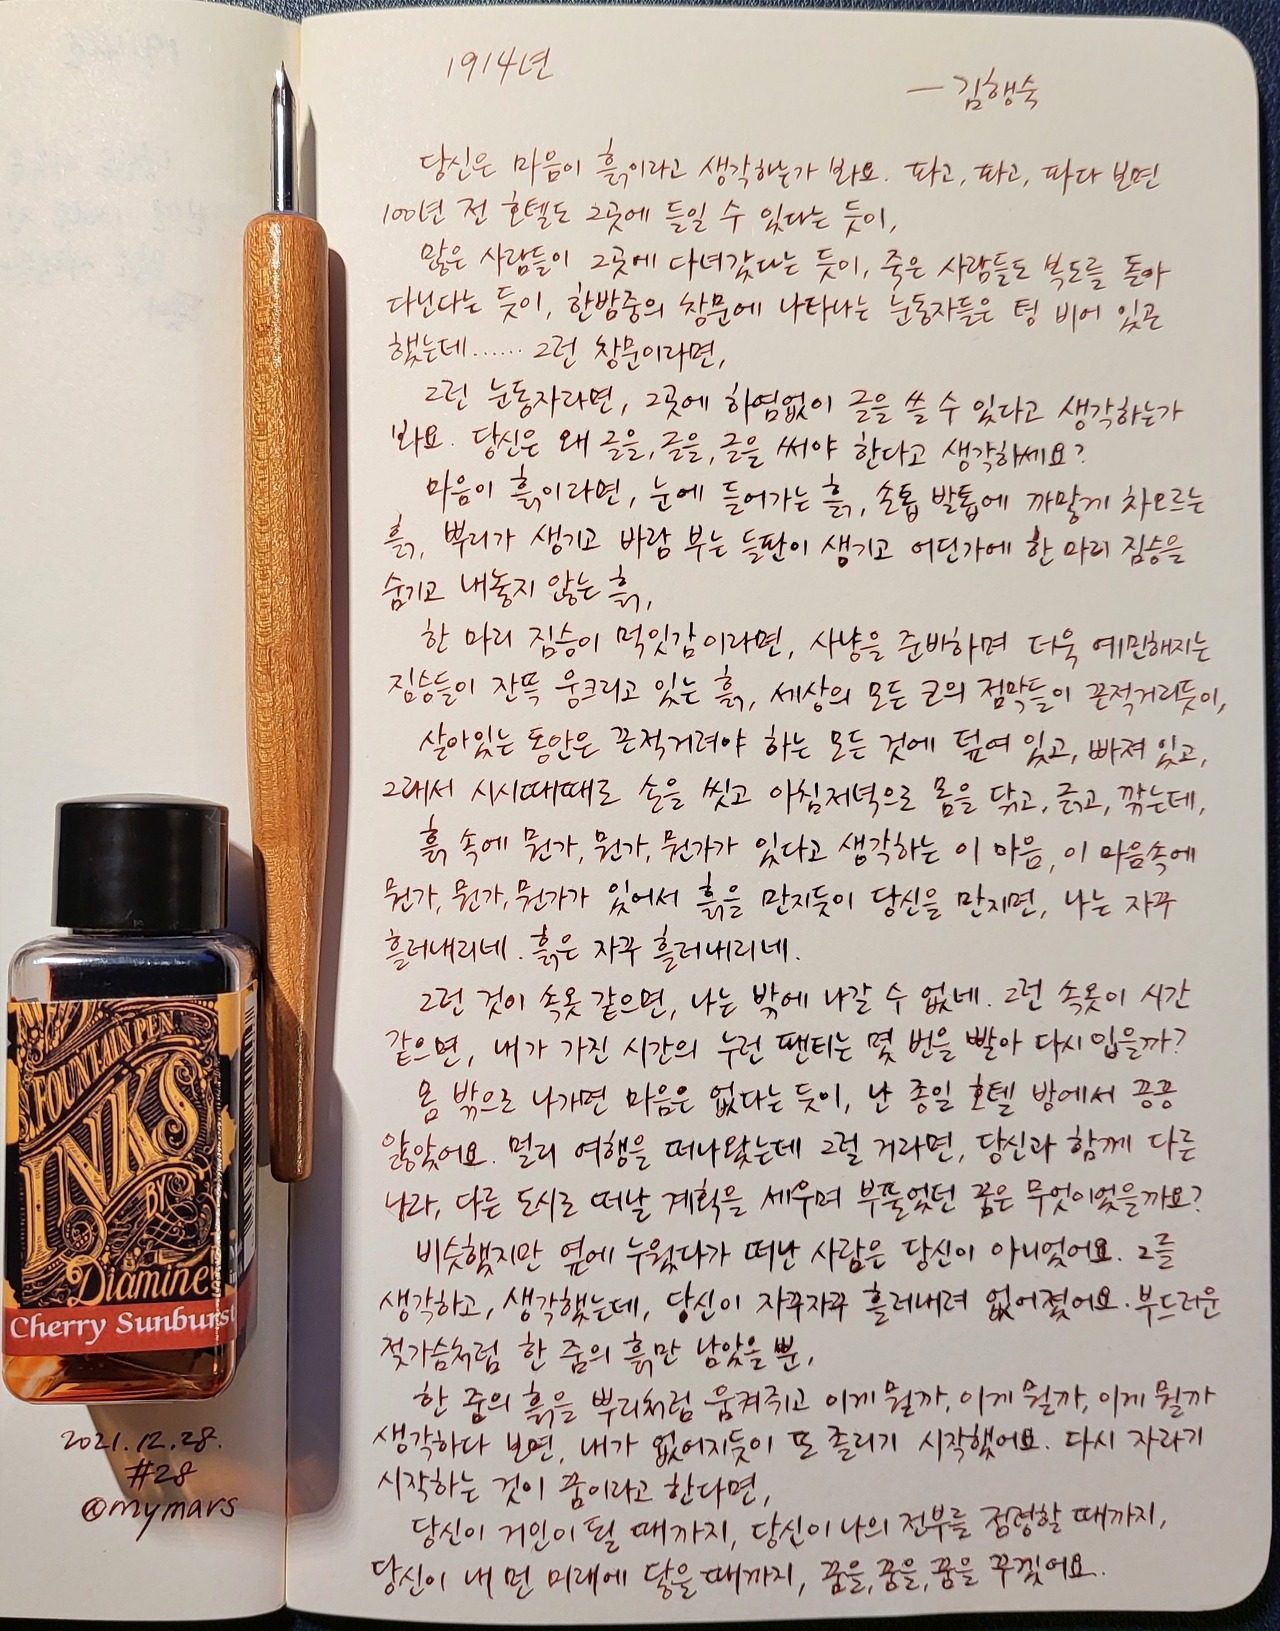 1914년
— 김행숙
당신은 마음이 흙이라고 생각하는가 봐요. 파고, 파고, 파다 보면
100년 전 호텔도 그곳에 들일 수 있다는 듯이,
많은 사람들이 그곳에 다녀갔다는 듯이, 죽은 사람들도 복도를 돌아
다닌다는 듯이, 한밤중의 창문에 나타나는 눈동자들은 텅 비어 있곤
했는데…… 그런 창문이라면,
그런 눈동자라면, 그곳에 하염없이 글을 쓸 수 있다고 생각하는가
봐요. 당신은 왜 글을, 글을, 글을 써야 한다고 생각하세요?
마음이 흙이라면, 눈에 들어가는 흙, 손톱 발톱에 까맣게 차오르는
흙, 뿌리가 생기고 바람 부는 들판이 생기고 어딘가에 한 마리 짐승을
숨기고 내놓지 않는 흙,
한 마리 짐승이 먹잇감이라면, 사냥을 준비하며 더욱 예민해지는
짐승들이 잔뜩 웅크리고 있는 흙, 세상의 모든 코의 점막들이 끈적거리듯이,
살아있는 동안은 끈적거려야 하는 모든 것에 덮여 있고, 빠져 있고,
그래서 시시때때로 손을 씻고 아침저녁으로 몸을 닦고, 긁고, 깎는데,
흙 속에 뭔가, 뭔가, 뭔가가 있다고 생각하는 이 마음, 이 마음속에
뭔가, 뭔가, 뭔가가 있어서 흙을 만지듯이 당신을 만지면, 나는 자꾸
흘러내리네. 흙은 자꾸 흘러내리네.
그런 것이 속옷 같으면, 나는 밖에 나갈 수 없네. 그런 속옷이 시간
같으면, 내가 가진 시간의 누런 팬티는 몇 번을 빨아 다시 입을까?
몸 밖으로 나가면 마음은 없다는 듯이, 난 종일 호텔 방에서 끙끙
앓았어요. 멀리 여행을 떠나왔는데 그럴 거라면, 당신과 함께 다른
나라, 다른 도시로 떠날 계획을 세우며 부풀었던 꿈은 무엇이었을까요?
비슷했지만 옆에 누웠다가 떠난 사람은 당신이 아니었어요. 그를
생각하고, 생각했는데, 당신이 자꾸자꾸 흘러내려 없어졌어요. 부드러운
젖가슴처럼 한 줌의 흙만 남았을 뿐,
한 줌의 흙을 뿌리처럼 움켜쥐고 이게 뭘까, 이게 뭘까, 이게 뭘까
생각하다 보면, 내가 없어지듯이 또 졸리기 시작했어요. 다시 자라기
시작하는 것이 꿈이라고 한다면,
당신이 거인이 될 때까지, 당신이 나의 전부를 점령할 때까지,
당신이 내 먼 미래에 닿을 때까지, 꿈을, 꿈을, 꿈을 꾸겠어요.
FOUNTAIN PEN
INKS
BY
Diamine
Cherry Sunburst
2021.12.28.
#28
@mymars